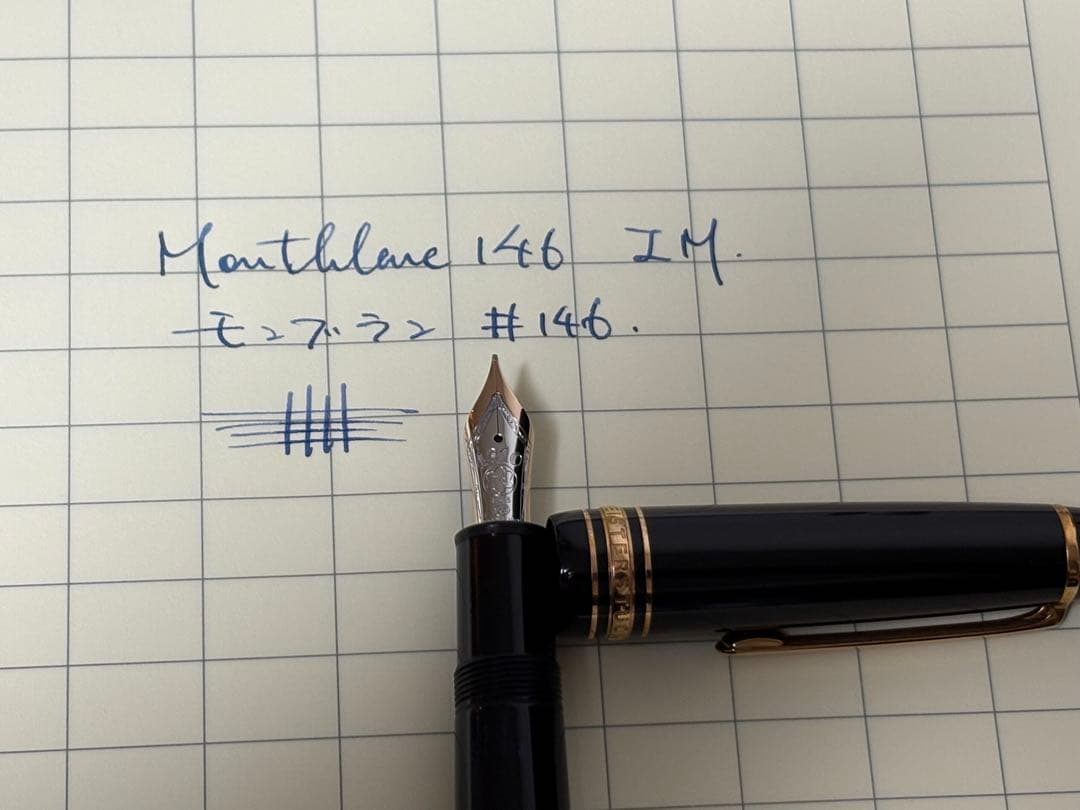 Montblanc 146 IM.
モンブラン #146.
EISTERSTÜ